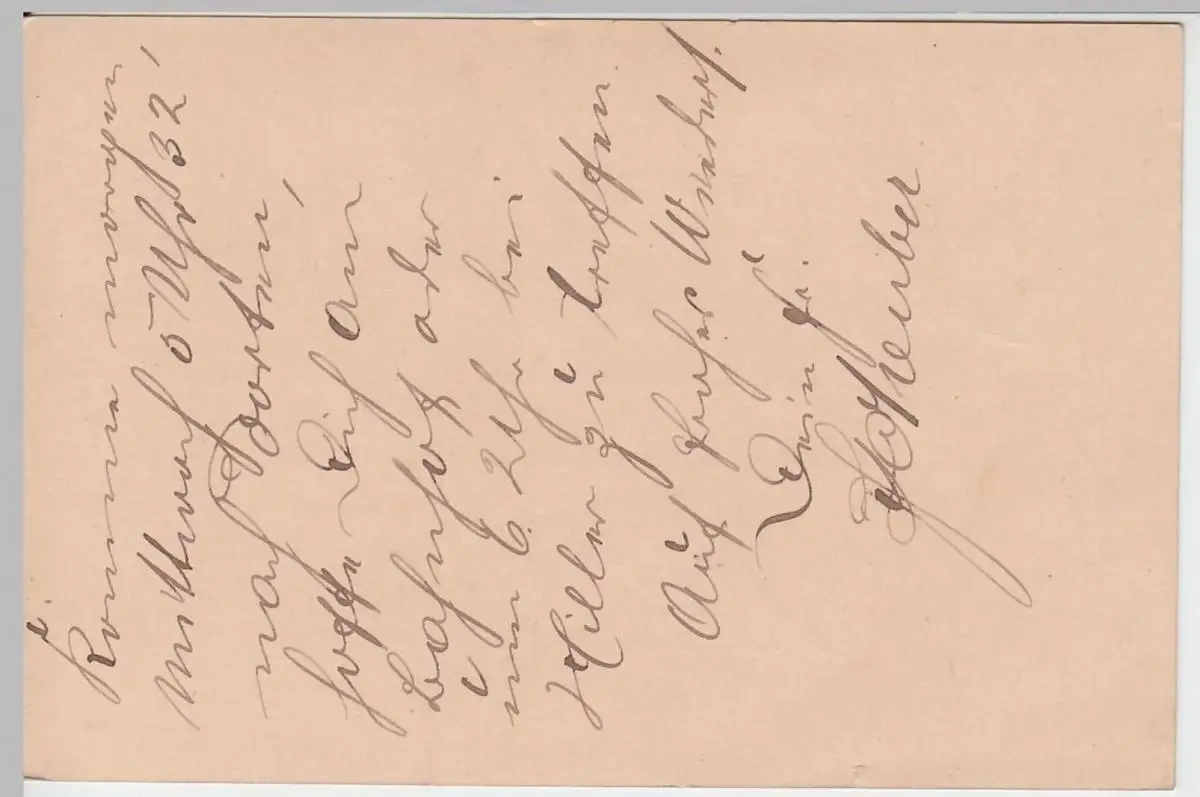 Komme morgen
Mittwoch 5 Uhr 32,
nach dorten,
hoffe Dich am
Bahnhof oder
um 6 Uhr bei
Hiller zu treffen.
Auf froher Wieders.
Dein Fr.